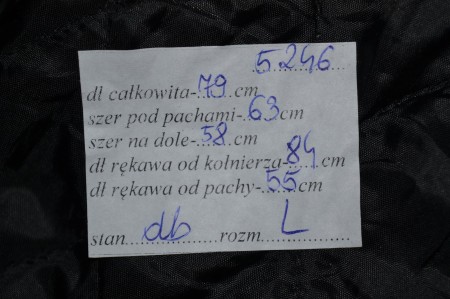 5246
dł całkowita-79 cm
szer pod pachami-63 cm
szer na dole-58 cm
dł rękawa od kołnierza-84 cm
dł rękawa od pachy-55 cm
stan db rozm L